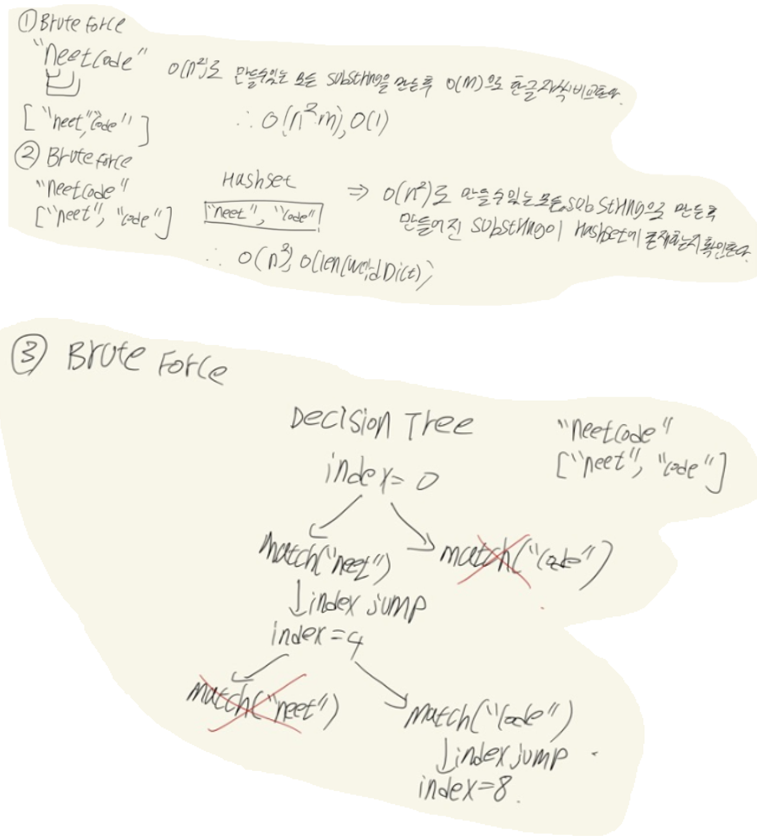 ① Brute Force
"neetcode" O(n²)로 만들수있는 모든 substring을 만든후 O(m)으로 한글자씩 비교한다.
["neet", "code"] ∴ O(n²m), O(1)
② Brute force
"neetcode" Hashset ⇒ O(n²)로 만들수있는 모든 substring으로 만든후
["neet", "code"] "neet", "code" 만들어진 substring이 Hashset에 존재하는지 확인한다.
∴ O(n³), O(len(wordDict))
③ Brute Force
Decision Tree "neetcode"
index = 0 ["neet", "code"]
match("neet") match("code")
index jump
index = 4
match("neet") match("code")
index jump
index = 8.